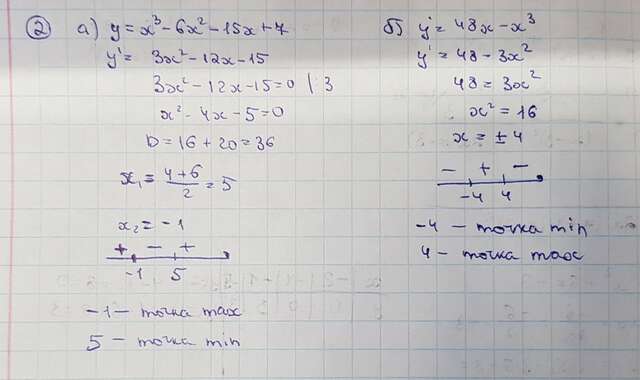 ② а) y = x³ - 6x² - 15x + 7
y' = 3x² - 12x - 15
3x² - 12x - 15 = 0 | 3
x² - 4x - 5 = 0
D = 16 + 20 = 36
x₁ = (4+6)/2 = 5
x₂ = -1
+ - +
-1 5
-1 - точка max
5 - точка min
б) y' = 48x - x³
y' = 48 - 3x²
48 = 3x²
x² = 16
x = ± 4
- + -
-4 4
-4 - точка min
4 - точка max